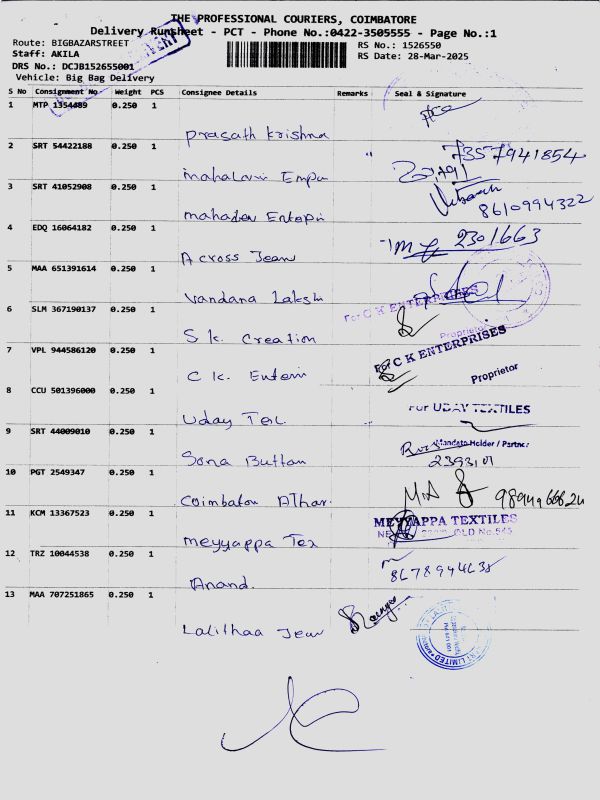 THE PROFESSIONAL COURIERS, COIMBATORE
Delivery Runsheet - PCT - Phone No.:0422-3505555 - Page No.:1
DELIVERY
Route: BIGBAZARSTREET
RS No.: 1526550
Staff: AKILA
RS Date: 28-Mar-2025
DRS No.: DCJB152655001
Vehicle: Big Bag Delivery
S No Consignment No Weight PCS Consignee Details Remarks Seal & Signature
1 MTP 1354489 0.250 1
Prasath Krishna
2 SRT 54422188 0.250 1
7357941854
mahalaxmi
3 SRT 41052908 0.250 1
8610994322
mahadev
4 EDQ 16064182 0.250 1
2301663
Across Jean
5 MAA 651391614 0.250 1
Vandana Lakshi
For C K ENTERPRISES
6 SLM 367190137 0.250 1
Proprietor
S k. Creation
7 VPL 944586120 0.250 1
For C K ENTERPRISES
Proprietor
C k.
8 CCU 501396000 0.250 1
For UDAY TEXTILES
Uday Tex.
9 SRT 44009010 0.250 1
Mandate Holder / Partner
Sona Button
10 PGT 2549347 0.250 1
Coimbatore Athar.
11 KCM 13367523 0.250 1
MEYYAPPA TEXTILES
OLD No.545
meyyappa Tex
12 TRZ 10044538 0.250 1
Anand.
13 MAA 707251865 0.250 1
Lalithaa Jew
LIMITED